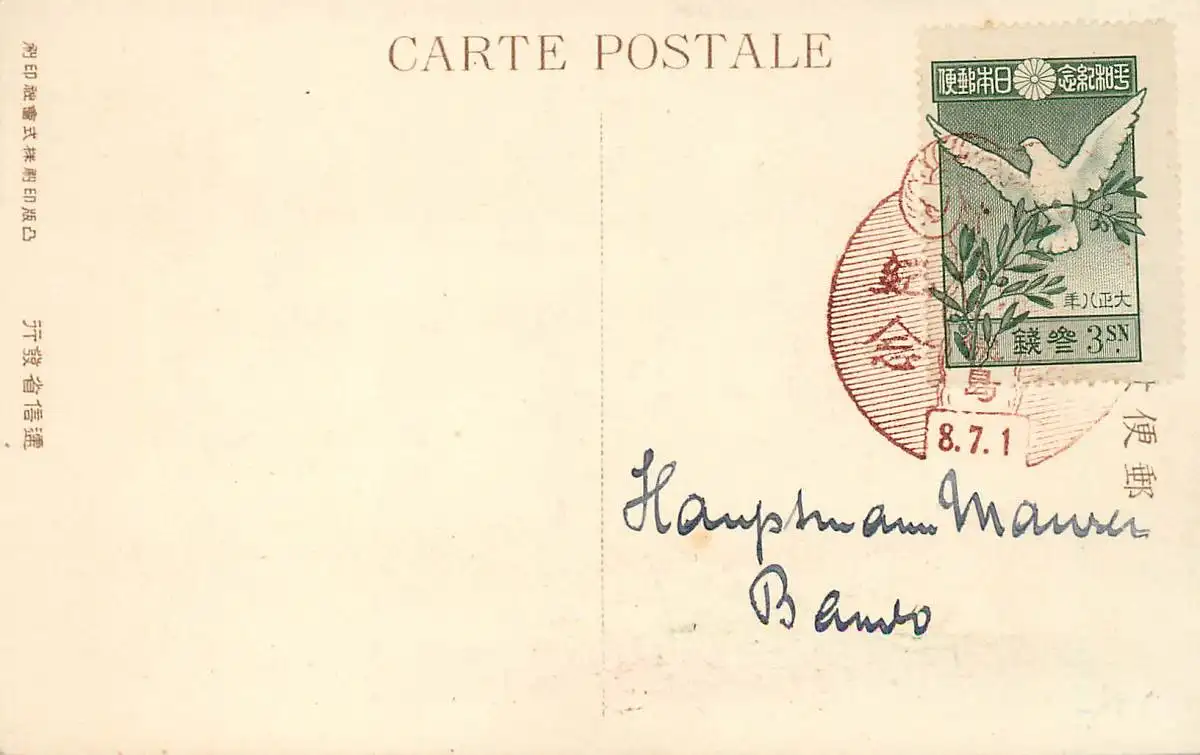 CARTE POSTALE
平和紀念 日本郵便
大正八年
3 SN. 參錢
紀念
島
8.7.1
郵便
Hauptmann Maurer
Bando
遞信省發行 凸版印刷株式會社印刷